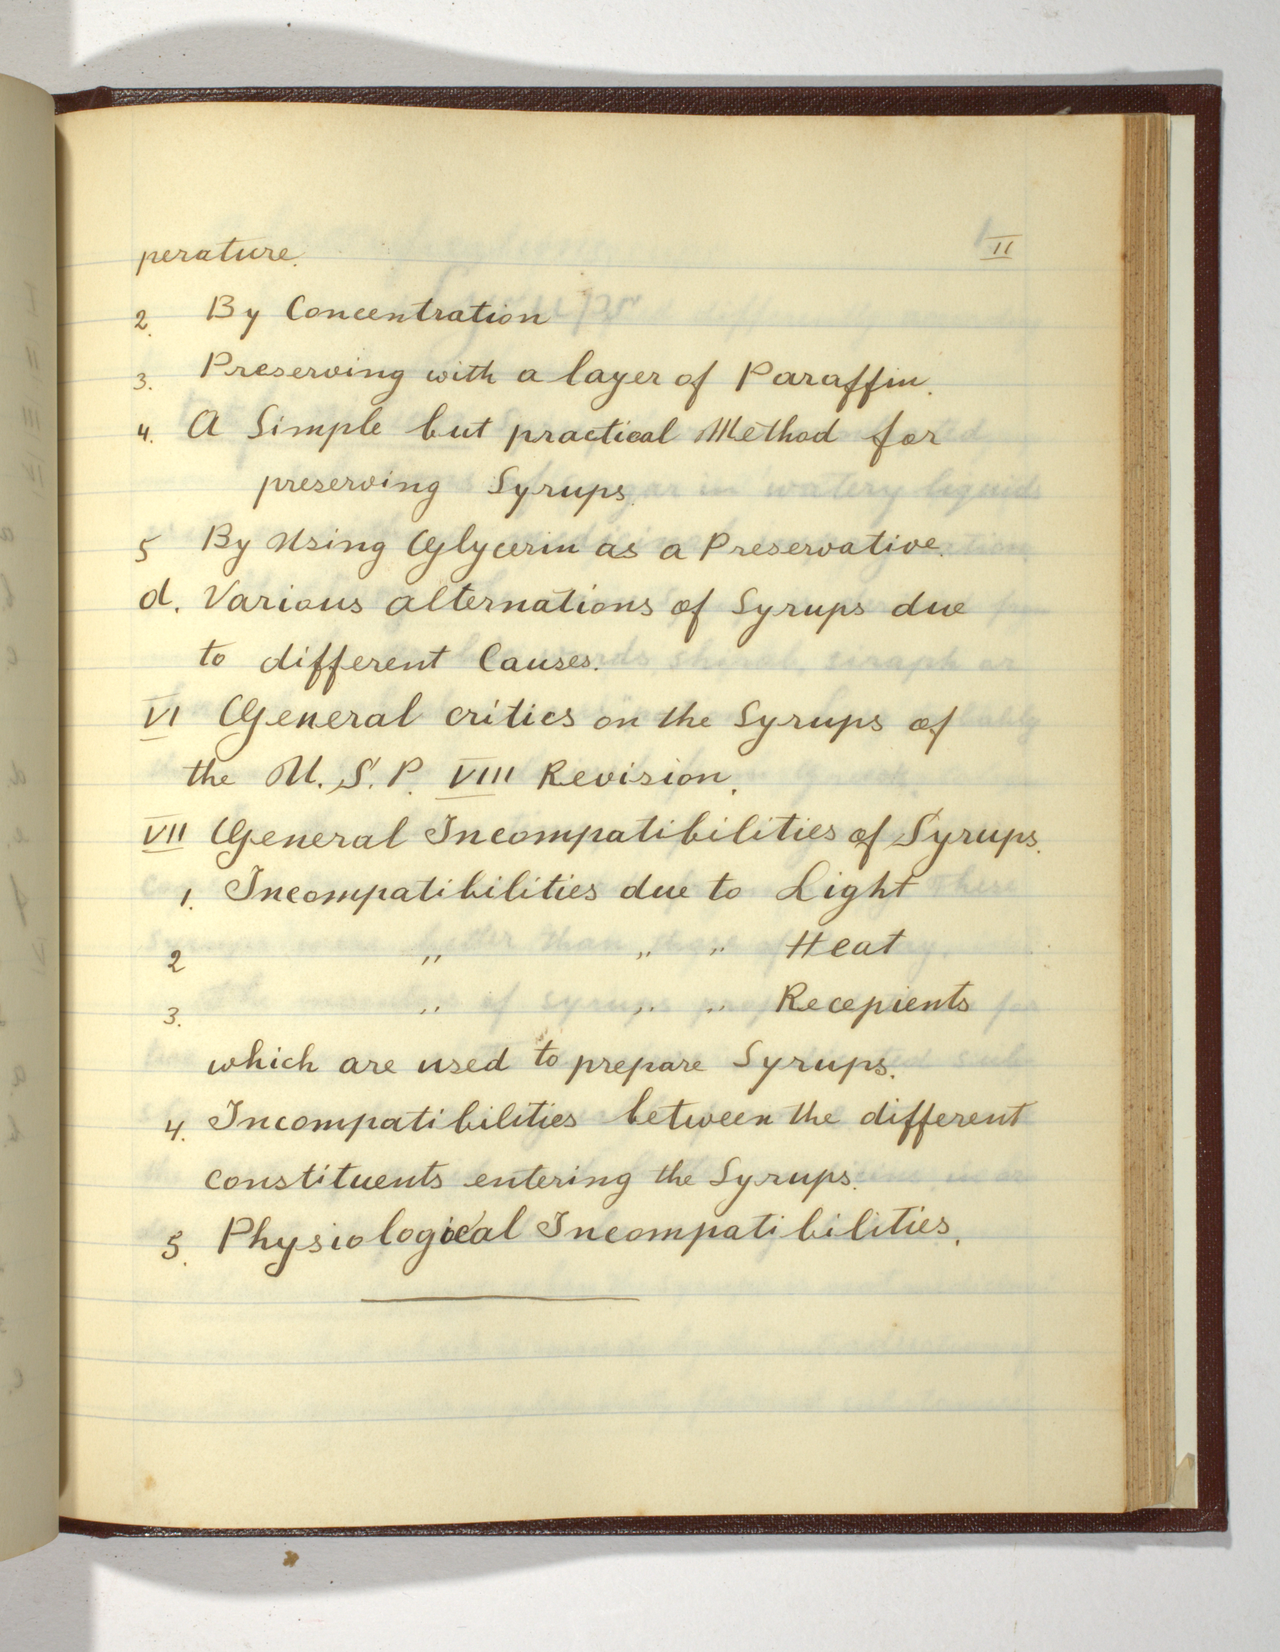 II
perature.
2. By Concentration
3. Preserving with a layer of Paraffin.
4. A Simple but practical Method for
preserving Syrups.
5 By Using Glycerin as a Preservative.
d. Various alternations of Syrups due
to different Causes.
VI General critics on the Syrups of
the U. S. P. VIII Revision.
VII General Incompatibilities of Syrups.
1. Incompatibilities due to Light
2 " " " Heat
3. " " " Recepients
which are used to prepare Syrups.
4. Incompatibilities between the different
constituents entering the Syrups.
5. Physiological Incompatibilities.